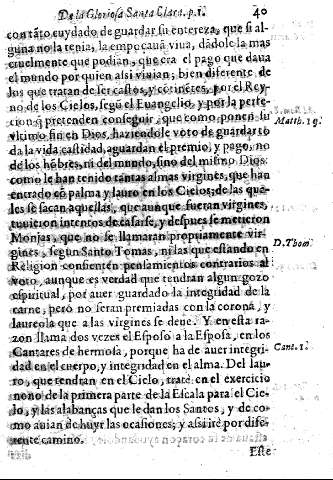 De la Gloriosa Santa Clara. p. 1. 40
con tãto cuydado de guardar su entereza, que si al-
guna no la tenia, la empocauã viua, dãdole la mas
cruelmente que podian, que era el pago que daua
el mundo por quien assi viuian; bien diferente de
los que tratan de ser castos, y cõtinẽtes, por el Rey-
no de los Cielos, segũ el Euangelio, y por la perfe-
cion q̃ pretenden conseguir, que como ponen su
vltimo fin en Dios, haziendole voto de guardar to
da la vida castidad, aguardan el premio, y pago, no
de los hõbres, ni del mundo, sino del mismo Dios:
como le han tenido tantas almas virgines, que han
entrado cõ palma y lauro en los Cielos; de las qua-
les se sacan aquellas, que aunque fueran virgines,
tuuieron intentos de casarse, y despues se metieron
Monjas, que no se llamaran propiamente vir-
gines, segun Santo Tomas, ni las que estando en
Religion consienten pensamientos contrarios al
voto, aunque es verdad que tendran algun gozo
espiritual, por auer guardado la integridad de la
carne, pero no seran premiadas con la corona, y
laureola que a las virgines se deue. Y en esta ra-
zon llama dos vezes el Esposo a la Esposa, en los
Cantares de hermosa, porque ha de auer integri-
dad en el cuerpo, y integridad en el alma. Del lau-
ro, que tendran en el Cielo, tratè en el exercicio
nono de la primera parte de la Escala para el Cie-
lo, y las alabanças que le dan los Santos, y de co-
mo auian de huyr las ocasiones; y assi irè por dife-
rente camino.
Este
Matth. 19.
D. Thom.
Cant. 1.